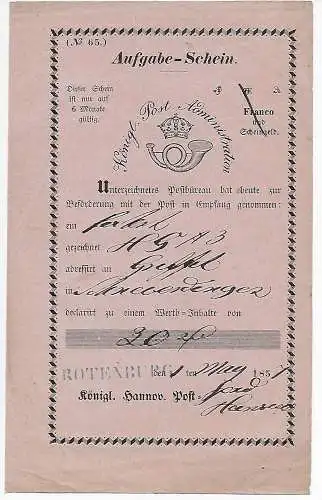 (№ 65.)
Aufgabe-Schein.
Dieser Schein
ist nur auf
6 Monate
gültig.
Franco
und
Scheingeld.
Königl. Post Administration
Unterzeichnetes Postbüreau hat heute zur
Beförderung mit der Post in Empfang genommen:
ein
gezeichnet H G A 3
adressirt an
in
declarirt zu einem Werth-Inhalte von
20
ROTENBURG den 1 ten May 185
Königl. Hannov. Post